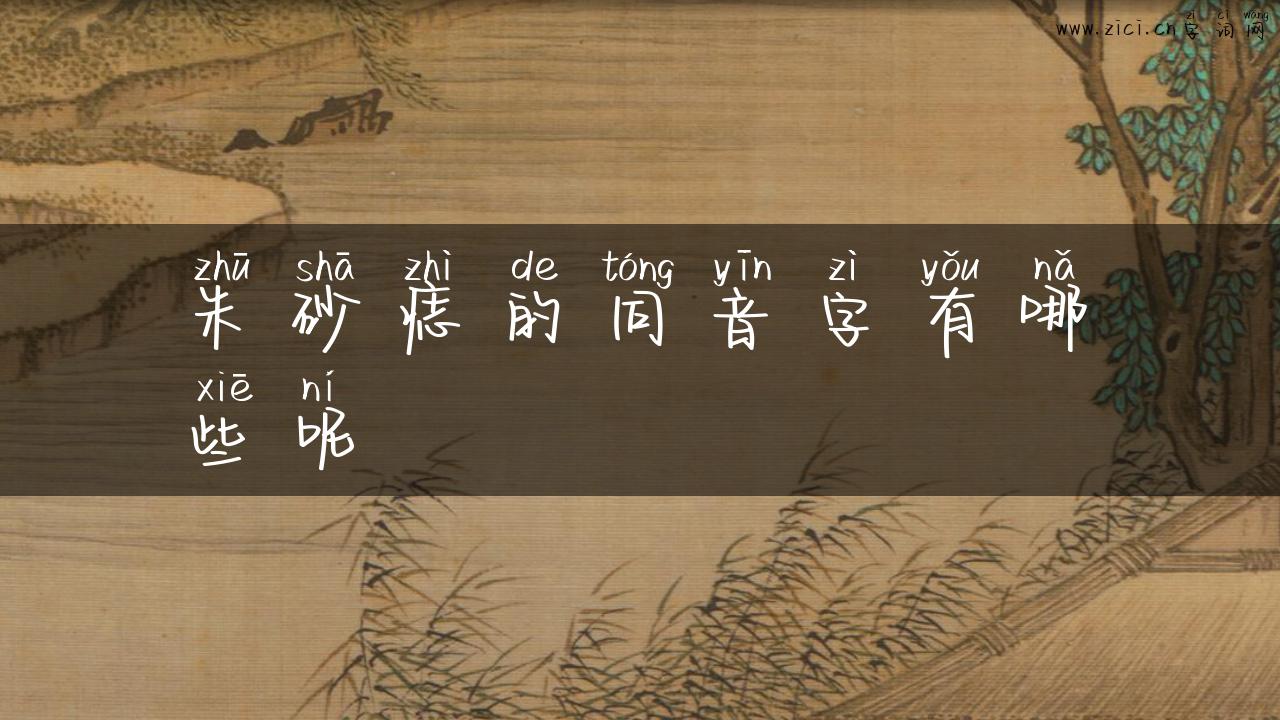 zì cí wǎng
www.zici.cn 字词网
zhū shā zhì de tóng yīn zì yǒu nǎ
朱砂痣的同音字有哪
xiē ní
些呢